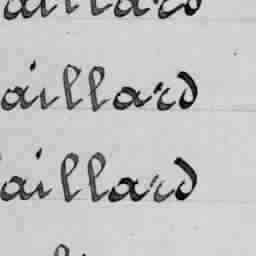 aillard
aillard
aillard